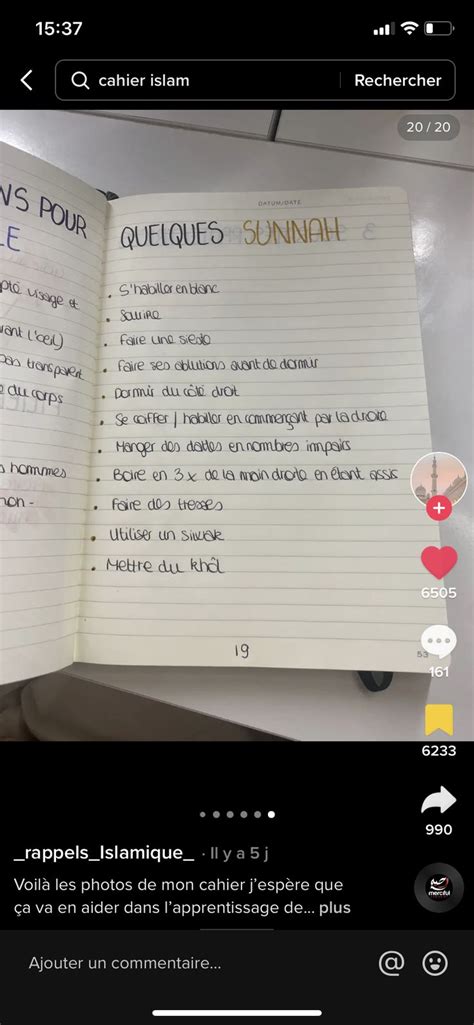 15:37
cahier islam
Rechercher
20 / 20
DATUM/DATE
NS POUR
LE
pté visage et
vant l'œil)
pas transparent
du corps
hommes
non -
QUELQUES SUNNAH
• S'habiller en blanc
• Sourire
• Faire une sieste
• Faire ses ablutions avant de dormir
• Dormir du côté droit
• Se coiffer / habiller en commerçant par la droite
• Manger des dattes en nombres impairs
• Boire en 3x de la main droite en étant assis
• Faire des tresses
• Utiliser un siwak
• Mettre du khôl
19
53
6505
161
6233
990
_rappels_Islamique_ · Il y a 5 j
Voilà les photos de mon cahier j'espère que
ça va en aider dans l'apprentissage de... plus
merciful
Ajouter un commentaire...